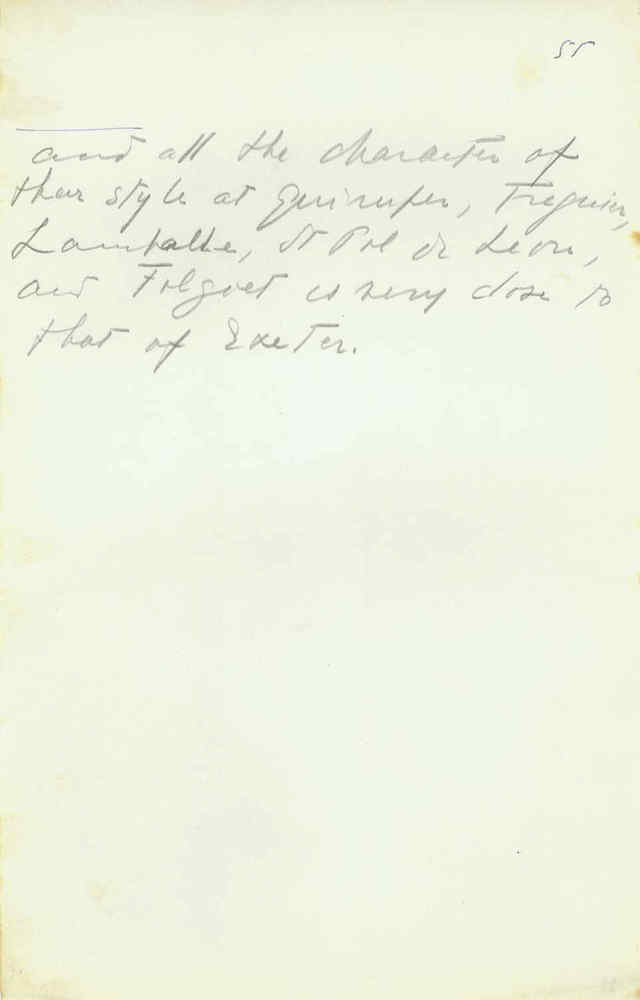 55
and all the character of
their style at Quimper, Treguier,
Lamballe, St Pol de Leon,
and Folgoet is very close to
that of Exeter.